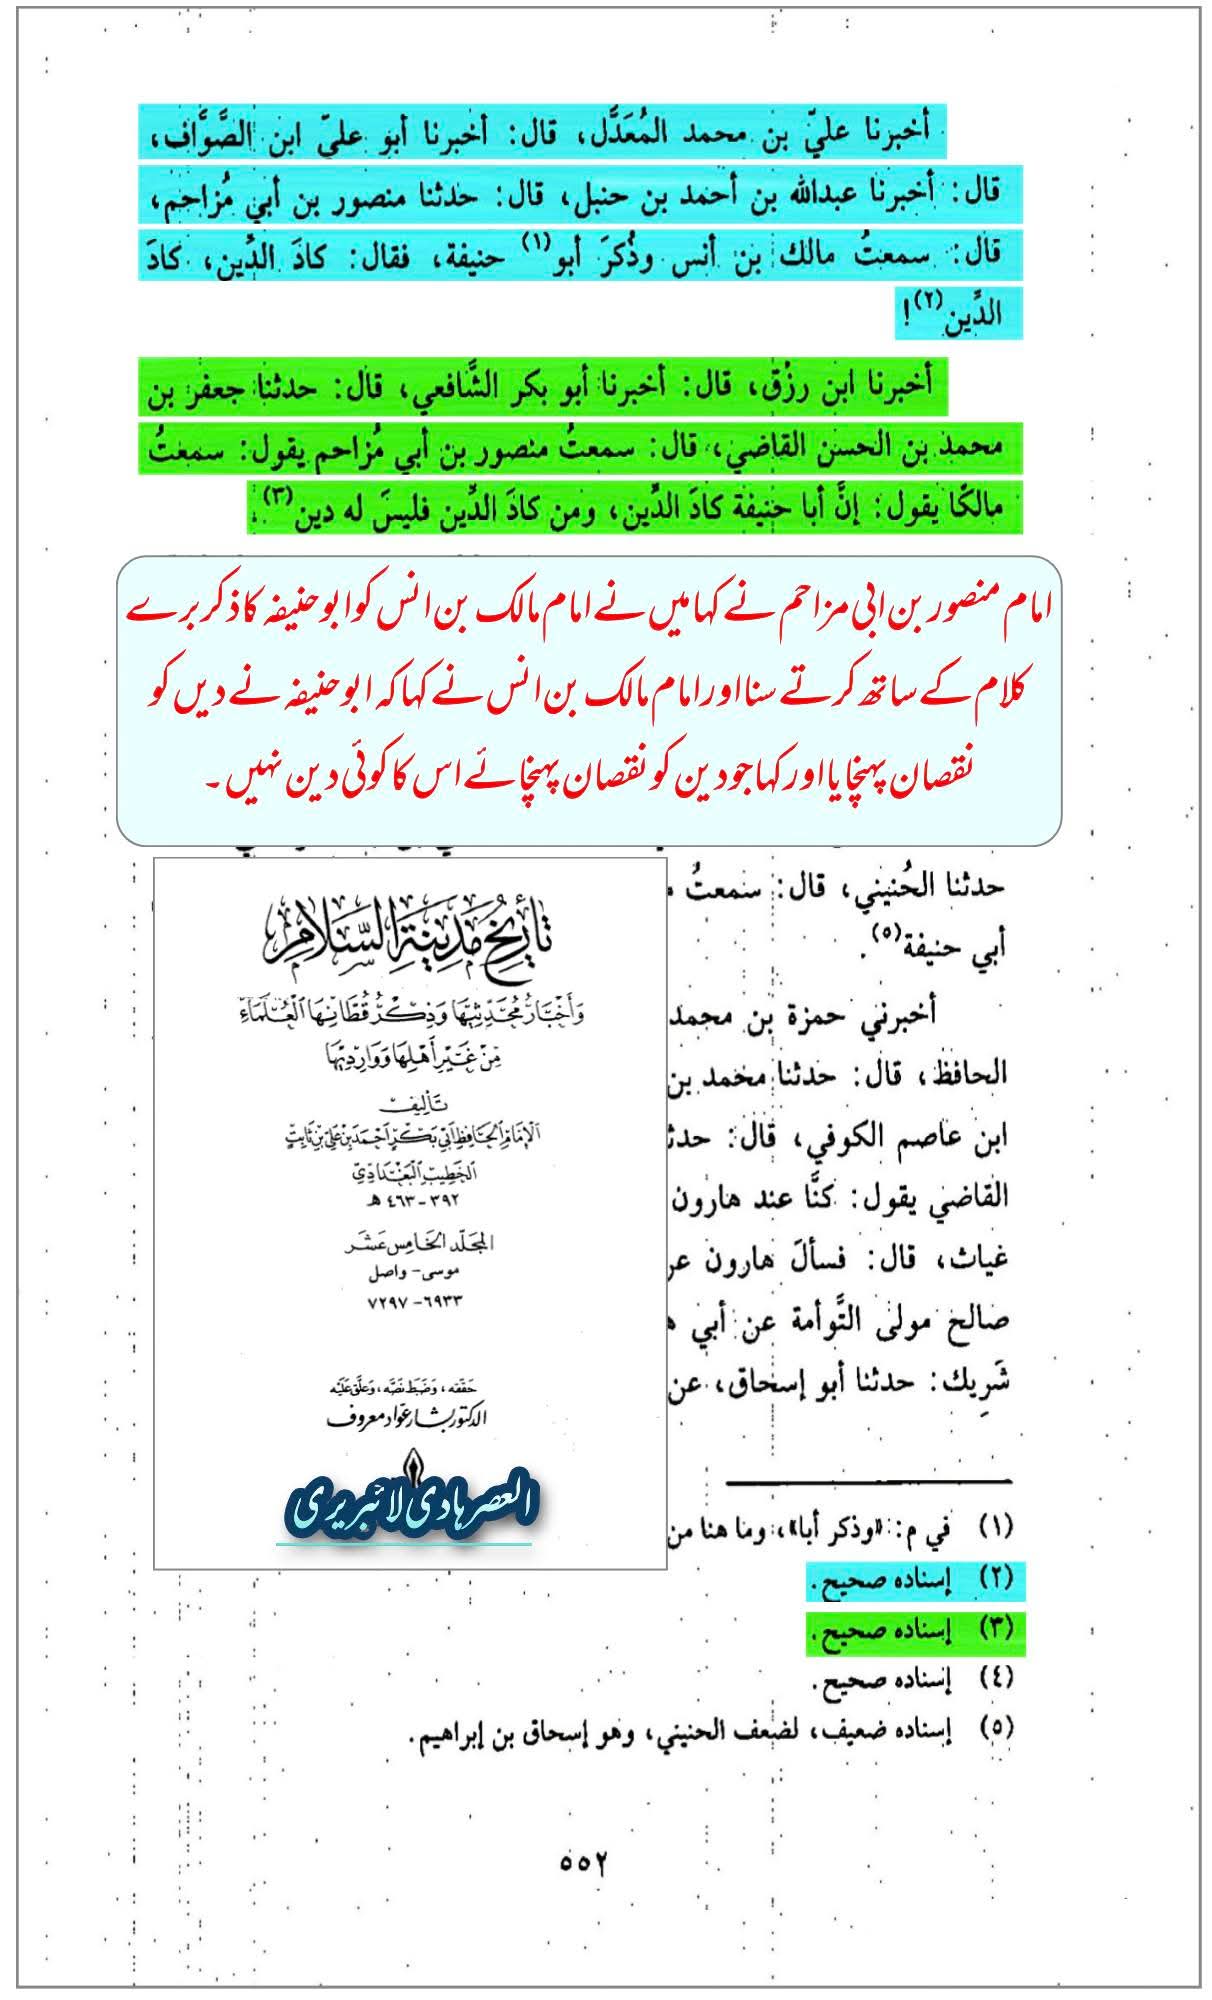 أخبرنا عليّ بن محمد المُعَدَّل، قال: أخبرنا أبو عليّ ابن الصَّوَّاف،
قال: أخبرنا عبدالله بن أحمد بن حنبل، قال: حدثنا منصور بن أبي مُزاحم،
قال: سمعتُ مالك بن أنس وذُكرَ أبو(١) حنيفة، فقال: كادَ الدِّين، كادَ
الدِّين(٢)!
أخبرنا ابن رزْق، قال: أخبرنا أبو بكر الشَّافعي، قال: حدثنا جعفر بن
محمد بن الحسن القاضي، قال: سمعتُ منصور بن أبي مُزاحم يقول: سمعتُ
مالكًا يقول: إنَّ أبا حنيفة كادَ الدِّين، ومن كادَ الدِّين فليسَ له دين(٣).
امام منصور بن ابی مزاحم نے کہا میں نے امام مالک بن انس کو ابو حنیفہ کا ذکر برے
کلام کے ساتھ کرتے سنا اور امام مالک بن انس نے کہا کہ ابو حنیفہ نے دیں کو
نقصان پہنچایا اور کہا جو دین کو نقصان پہنچائے اس کا کوئی دین نہیں۔
حدثنا الحُنيني، قال: سمعتُ
أبي حنيفة(٥).
أخبرني حمزة بن محمد
الحافظ، قال: حدثنا محمد بن
ابن عاصم الكوفي، قال:
القاضي يقول: كنَّا عند هارون
غياث، قال: فسألَ هارون
صالح مولى التَّوأمة عن أبي
شَرِيك: حدثنا أبو إسحاق، عن
تأريخ مدينة السلام
وأخبار محدثيها وذكر قطانها العلماء
من غير أهلها ووارديها
تأليف
الإمام الحافظ أبي بكر أحمد بن علي بن ثابت
الخطيب البغدادي
٣٩٢ - ٤٦٣ هـ
المجلد الخامس عشر
موسى - واصل
٦٩٣٣ - ٧٢٩٧
حققه، وضبط نصه، وعلق عليه
الدكتور بشار عواد معروف
العصر ہادی لائبریری
(١) في م: «وذكر أبا»، وما هنا من
(٢) إسناده صحيح.
(٣) إسناده صحيح.
(٤) إسناده صحيح.
(٥) إسناده ضعيف، لضعف الحنيني، وهو إسحاق بن إبراهيم.
٥٥٢